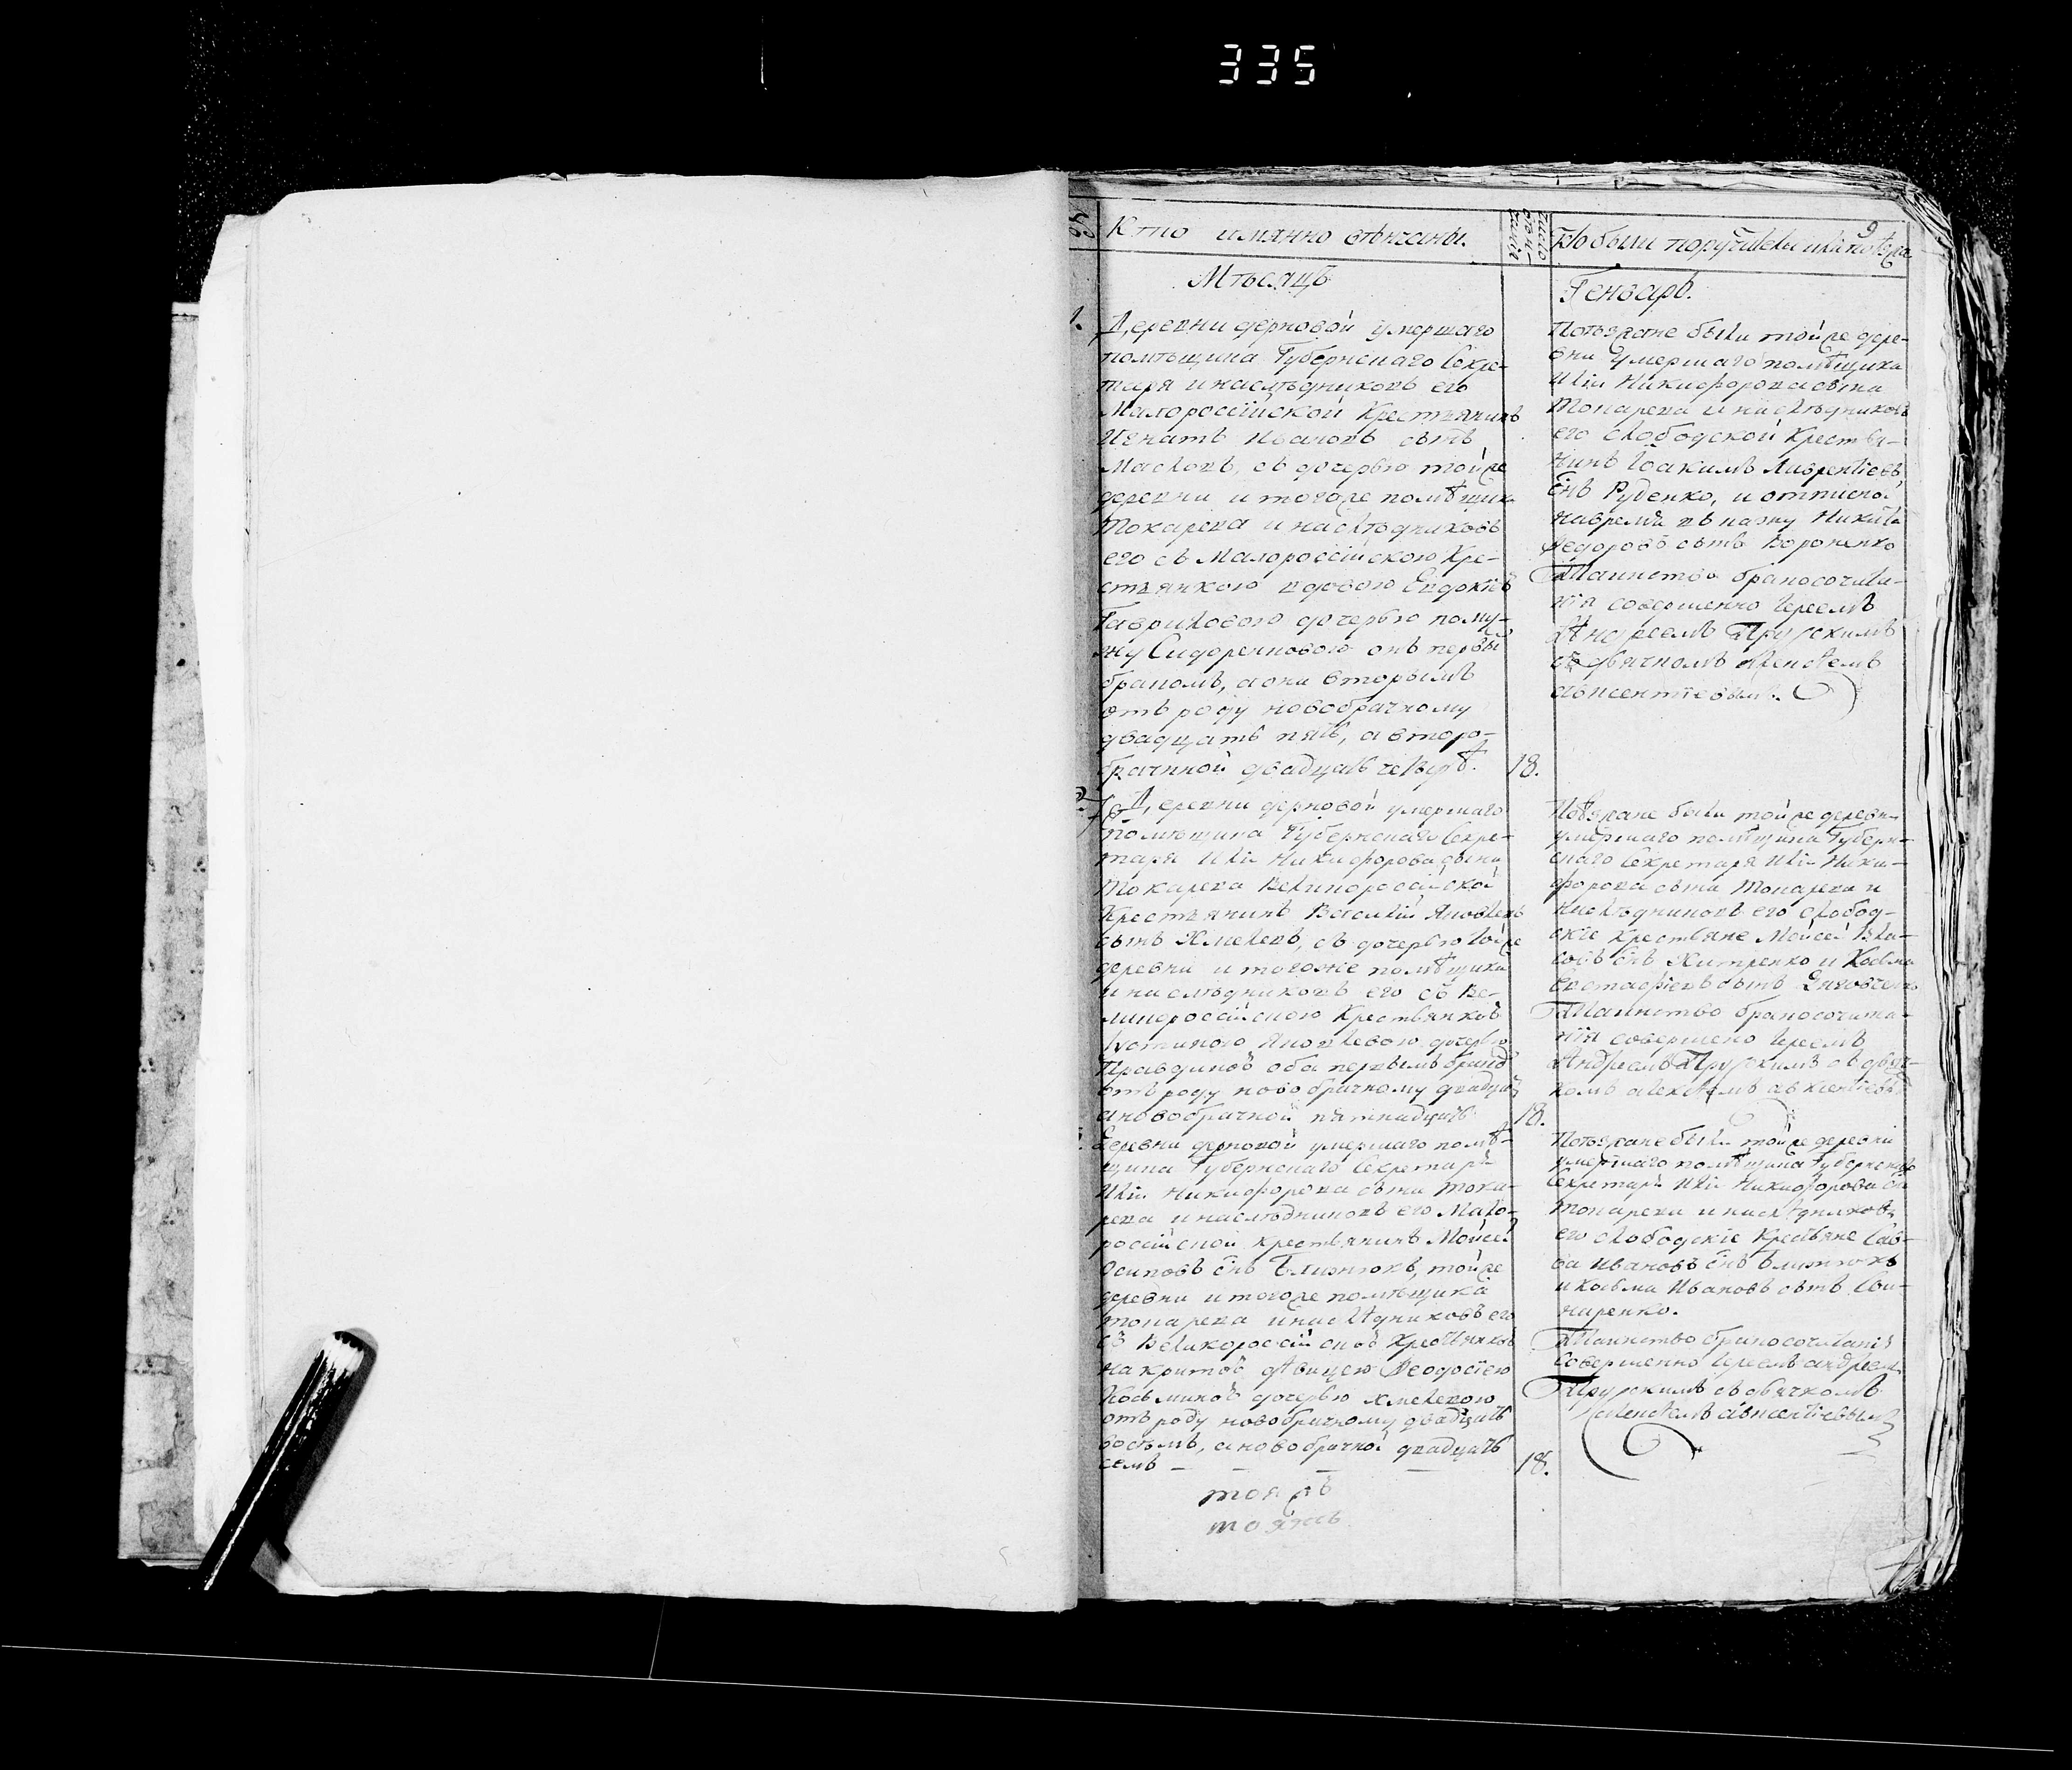 335
9
Кто имянно венчаны.
Кто были поручители или по
Мѣсяцъ
Генварь.
1.
Деревни дерновой умершаго
помѣщика Губернскаго Секре-
таря и наслѣдниковъ его
Малороссійской Крестьянинъ
Игнатъ Ивановъ сынъ
Масловъ, съ дочерью тойже
деревни и тогоже помѣщика
Токарева и наслѣдниковъ
его съ Малороссійскою Кре-
стьянкою вдовою Евдокіею
Гавриловою дочерью по му-
жу Сидоренковою онъ первы
бракомъ, а она вторымъ
отъ роду новобрачному
двадцать пять, а второ-
брачной двадцать четыре.
18.
Потъзжане были тойже дере-
вни умершаго помѣщика
Иліи Никифорова сына
Токарева и наслѣдниковъ
его слободской Крестья-
нинъ Іоакимъ Лаврентіевъ
снъ Руденко, и
Никита
Федоровъ сынъ Вороненко
Таинство бракосочета-
нія совершенно Іереемъ
Андреемъ Прускимъ
съ дьячкомъ Алексѣемъ
авксентіевым.
2.
Деревни дерновой умершаго
помѣщика Губернскаго Секре-
таря Иліи Никифорова сына
Токарева Великоросійской
Крестьянинъ Василій Яковлевъ
сынъ Хмелевъ, съ дочерью тойже
деревни и тогоже помѣщика
и наслѣдниковъ его съ Ве-
ликороссійскою Крестьянкою
Яковлевою дочерью
Правдиковъ оба первымъ бракомъ
отъ роду новобрачному двадцать
а новобрачной пятнадцать
18.
Потъзжане были тойже деревни
умершаго помѣщика Губерн-
скаго Секретаря Иліи Ники-
форова сына Токарева и
наслѣдниковъ его слобод-
скіе Крестьяне Мойсей Вла-
совъ снъ Хитренко и Козма
Евстафіевъ сынъ
Таинство бракосочета-
нія совершено Іереемъ
Андреемъ Прускимъ съ дьяч-
комъ алексѣемъ авксентіевы
Деревни дерновой умершаго помѣ-
щика Губернскаго Секретаря
Иліи Никифорова сына Тока-
рева и наслѣдниковъ его Мало-
россійской крестьянинъ Мойсей
Осиповъ снъ Близнюкъ, тойже
деревни и тогоже помѣщика
токарева и наслѣдниковъ его
съ Великороссійскою Крестьянкою
накритою дѣвицею Феодосіею
Козьминою дочерью хмелевою
отъ роду новобрачному двадцать
восемь, а новобрачной двадцать
семь — — — —
18.
Потъзжане были тойже деревни
умершаго помѣщика Губернскаго
Секретаря Иліи Никифорова сн
Токарева и наслѣдниковъ
его слободскіе Крестьяне Сав-
ва Ивановъ снъ Близнюкъ
и Козьма Ивановъ сынъ Сви-
наренко.
Таинство бракосочетанія
Совершенно Іереемъ андреем
Прускимъ съ дьячкомъ
Алексѣемъ авксентіевым
тоясъ
тоясъ